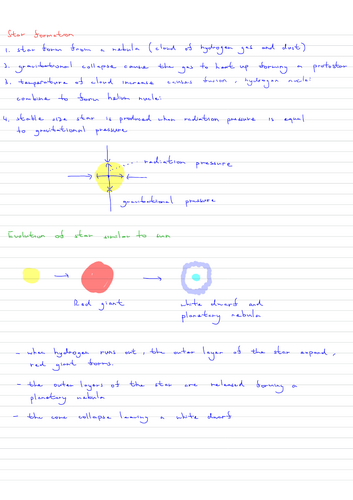 Star formation
1. star form from a nebula (cloud of hydrogen gas and dust)
2. gravitational collapse cause the gas to heat up forming a protostar
3. temperature of cloud increase causes fusion, hydrogen nuclei
combine to form helium nuclei
4. stable size star is produced when radiation pressure is equal
to gravitational pressure
radiation pressure
gravitational pressure
Evolution of star similar to sun
Red giant
white dwarf and
planetary nebula
- when hydrogen runs out, the outer layer of the star expand,
red giant forms.
- the outer layers of the star are released forming a
planetary nebula
- the core collapse leaving a white dwarf